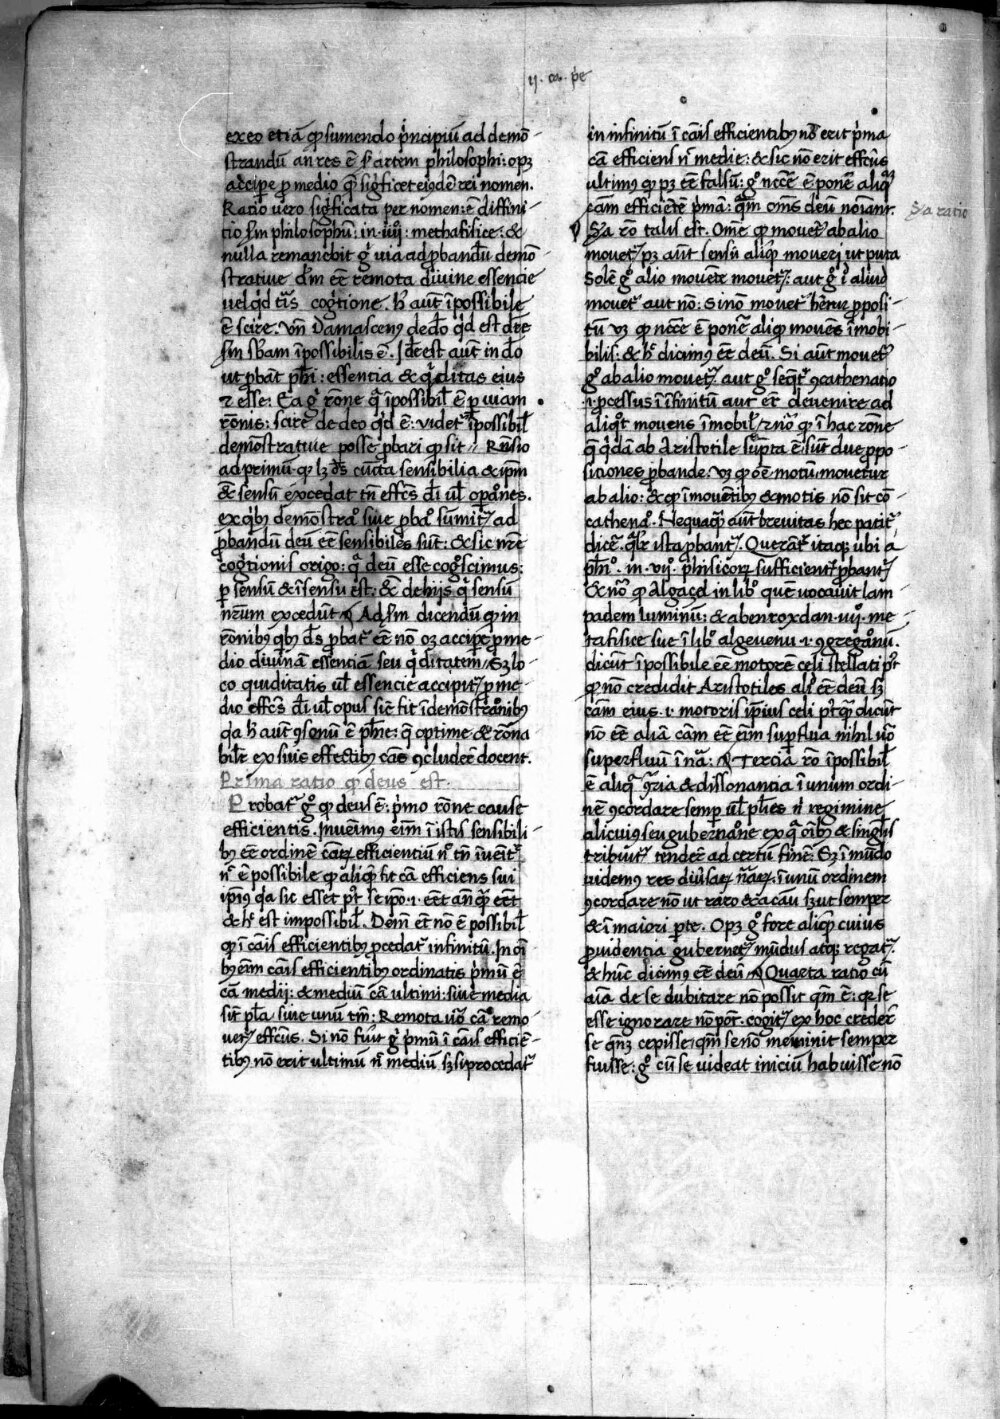 ij. ca. pe
ex eo etiā qꝫ sumendo p̄ncipiū ad demō-
strandū an res ē s̄ artem philosophi: opꝫ
accipe pro medio qͥ sigficet eiꝰdē rei nomen.
Ratio vero sigficata per nomen: ē diffini-
tio scdm philosophū: in .iiij. methafisice: &
nulla remanebit gͦ via ad probandū demō-
strative dm̄ eē remota divine essencie
vel qͥd ē cogtione. h̄ aut̄ īpossibile
ē scire. vn̄ Damascenꝰ de dō qͥd est dr̄e
scdm sbam īpossibilis ē. Idē est aut̄ in dō
ut pbāt phī: essencia & qͥditas eius
⁊ esse: Ea gͦ rōne qͣ īpossibil ē p viam
rōnis: scire de deo qͥd ē: videt īpossibil
demōstrative posse probari qꝫ sit. Rn̄sio
ad primum qꝫ lꝫ ds̄ cūcta sensibilia & ipm̄
sensū excedat tn̄ effcs̄ dī vl opōnes.
ex qͥbꝰ demōstrao sive probao sumit ad
probandū deū eē sensibiles sūt: & sic nr̄e
cogtionis origo: qͣ deū esse cogscimus:
p sensū & ī sensu est: & de hijs qͥ sensū
nr̄um excedūt. Ad scdm dicendū qꝫ in
rōnibꝰ qͥbꝰ ds̄ probat eē nō oꝫ accipe pro me-
dio divinā essenciā seu qͥditatem. Sꝫ lo-
co quiditatis vl essencie accipit pro me-
dio effcs̄ dī vl opus sicͭ fit ī demōstrōnibꝰ
qa h̄ aut̄ 9sonū ē phie: qͥ optime & rōna
bilr̄ ex suis effectibꝰ cās 9cludere docent.
Prima ratio qꝫ deus est.
Probat gͦ qꝫ deus ē: pͥmo rōne cause
efficientis. Invenimꝰ eīm ī istis sensibili-
bꝰ eē ordinē cāꝝ efficientiū nͦ tn̄ īvenit
nͨ ē possibile qꝫ aliqͥd sit cā efficiens sui
ipiꝰ qa sic esset pͭ se ipō .i. eēt an̄ qͣ eēt
& hͨ est impossibil. Demū et nō ē possibil
qꝫ ī cāis efficientibꝰ procedat infinitū. In oī
bꝰ eīm cāis efficientibꝰ ordinatis pͥmū ē
cā medij: & mediū cā ultimi: sive media
sit pla sive unū tm̄: Remota vō cā remo-
vet effcūs. Si nō fuit gͦ pͥmū ī cāis efficiē-
tibus nō erit ultimū nͨ mediū sꝫ si procedat
in infinitū ī cāis efficientibꝰ nō erit pͥma
cā efficiens nͨ medie: & sic nō erit effcūs
ultimꝰ qꝫ pꝫ eē falsū: gͦ nccē ē ponē aliqͣ
cām efficiētē pͥmā: qͣm oms̄ deū noīant.
Sa ratio
Sa ro talis est. Omē qꝫ movet ab alio
movet pꝫ aut̄ sensū aliqͥd moveri ut puta
Solē gͦ alio movēte movet: aut gͦ ī aliud
movet aut nō: Si nō movet hētur proposi-
tū vꝫ qꝫ nccē ē ponē aliqͥd movēs īmobi-
bilis: & hͨ dicimꝰ eē deū. Si aut̄ movet
gͦ ab alio movet. aut gͦ seqͭ 9cathenatio
.i. processus ī īfinitū aut eēt devenire ad
aliqͥd movens īmobil: ⁊ nͦ qꝫ ī hac rōne
qͣ qͥdā ab Aristotile sūpta ē: sūt due propo-
siciones probande. vꝫ qꝫ oē motū movetur
ab alio: & qꝫ ī movētibꝰ & motis nō sit cō-
cathenao. Nequaqͣ aut̄ brevitas hec patit
dicē qͣlr̄ ista probant. Querāt itaqꝫ ubi a
phō. in .vij. phisicoꝝ sufficient probant
& nō qꝫ Algaꝫel in libͦ quē vocavit lam-
padem luminū: & abenroxdan .vij. me-
tafisice sive ī libͦ algevenu .i. 9gregōnū.
dicūt īpossibile eē motorē celi stellati pt
qꝫ nō credidit Aristotiles alͫ eē deū sꝫ
cām eius .i. motoris ipius celi pt qꝫ dicūt
nō eē aliā cām eē eīm superflua nihil vō
superfluū ī nͣa: Tercia rō īpossibil
ē aliqͣ 9ͣria & dissonancia ī unum ordi-
nē 9cordare semp vl plies nͥ regimine
alicuiꝰ seu gubernaōne ex qͣ oībꝰ & singlis
tribuūt tendere ad certū finē: Sꝫ ī mūdo
videmꝰ res diversaꝝ nāꝝ ī unū ordinem
9cordare nō ut raro & a casu sꝫ ut semper
& ī maiori pte. Opꝫ gͦ fore aliqͥd cuius
providencia gubernet mūdus atqꝫ regat.
& hūc dicimꝰ eē deū. Quarta ratio cū
aīa de se dubitare nō possit qͣm ē: qꝫ se
esse ignorare nō pōt. cogit ex hoc credere
se qn̄qꝫ cepisse: qͣm se nō meminit semper
fuisse: gͦ cū se videat iniciū habuisse nō